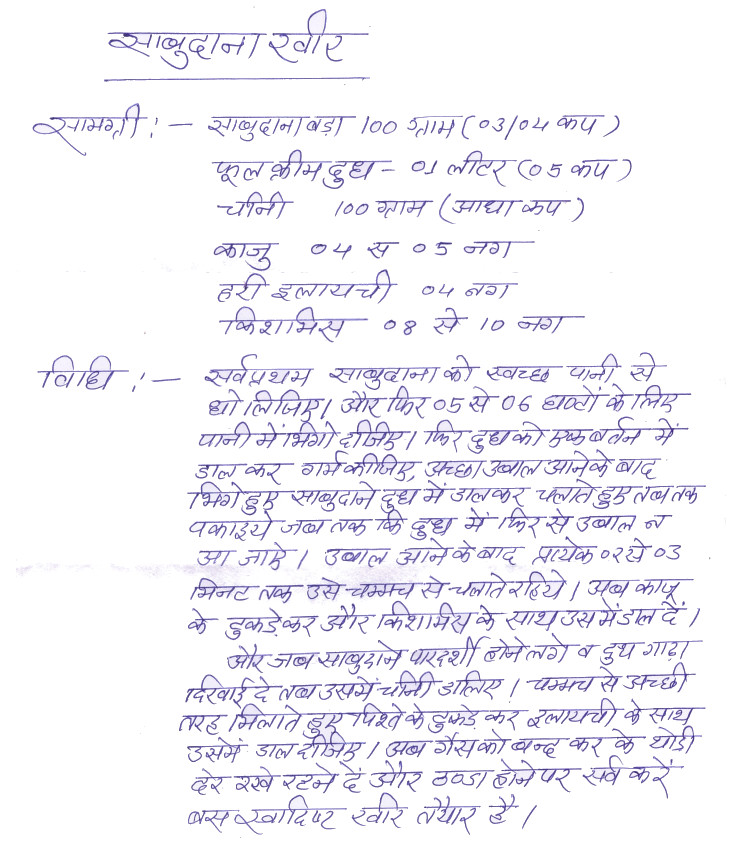 साबुदाना खीर
सामग्री :- साबुदाना बड़ा 100 ग्राम (03/04 कप)
फूल क्रीम दुध - 01 लीटर (05 कप)
चीनी 100 ग्राम (आधा कप)
काजु 04 से 05 नग
हरी इलायची 04 नग
किशमिस 08 से 10 नग
विधि :- सर्वप्रथम साबुदाना को स्वच्छ पानी से
धो लिजिए। और फिर 05 से 06 घण्टों के लिए
पानी में भिगो दीजिए। फिर दुध को एक बर्तन में
डाल कर गर्म कीजिए, अच्छा उबाल आने के बाद
भिगे हुए साबुदाने दुध में डालकर चलाते हुए तब तक
पकाइये जब तक कि दुध में फिर से उबाल न
आ जाऐ। उबाल आने के बाद प्रत्येक 02 से 03
मिनट तक उसे चम्मच से चलाते रहिये। अब काजू
के टुकड़े कर और किशमिस के साथ उसमें डाल दें।
और जब साबुदाने पारदर्शी होने लगे व दुध गाढ़ा
दिखाई दे तब उसमें चीनी डालिए। चम्मच से अच्छी
तरह मिलाते हुए पिश्ते के टुकड़े कर इलायची के साथ
उसमें डाल दीजिए। अब गैस को बन्द कर के थोड़ी
देर रखे रहने दें और ठण्डा होने पर सर्व करें
बस स्वादिष्ट खीर तैयार है।